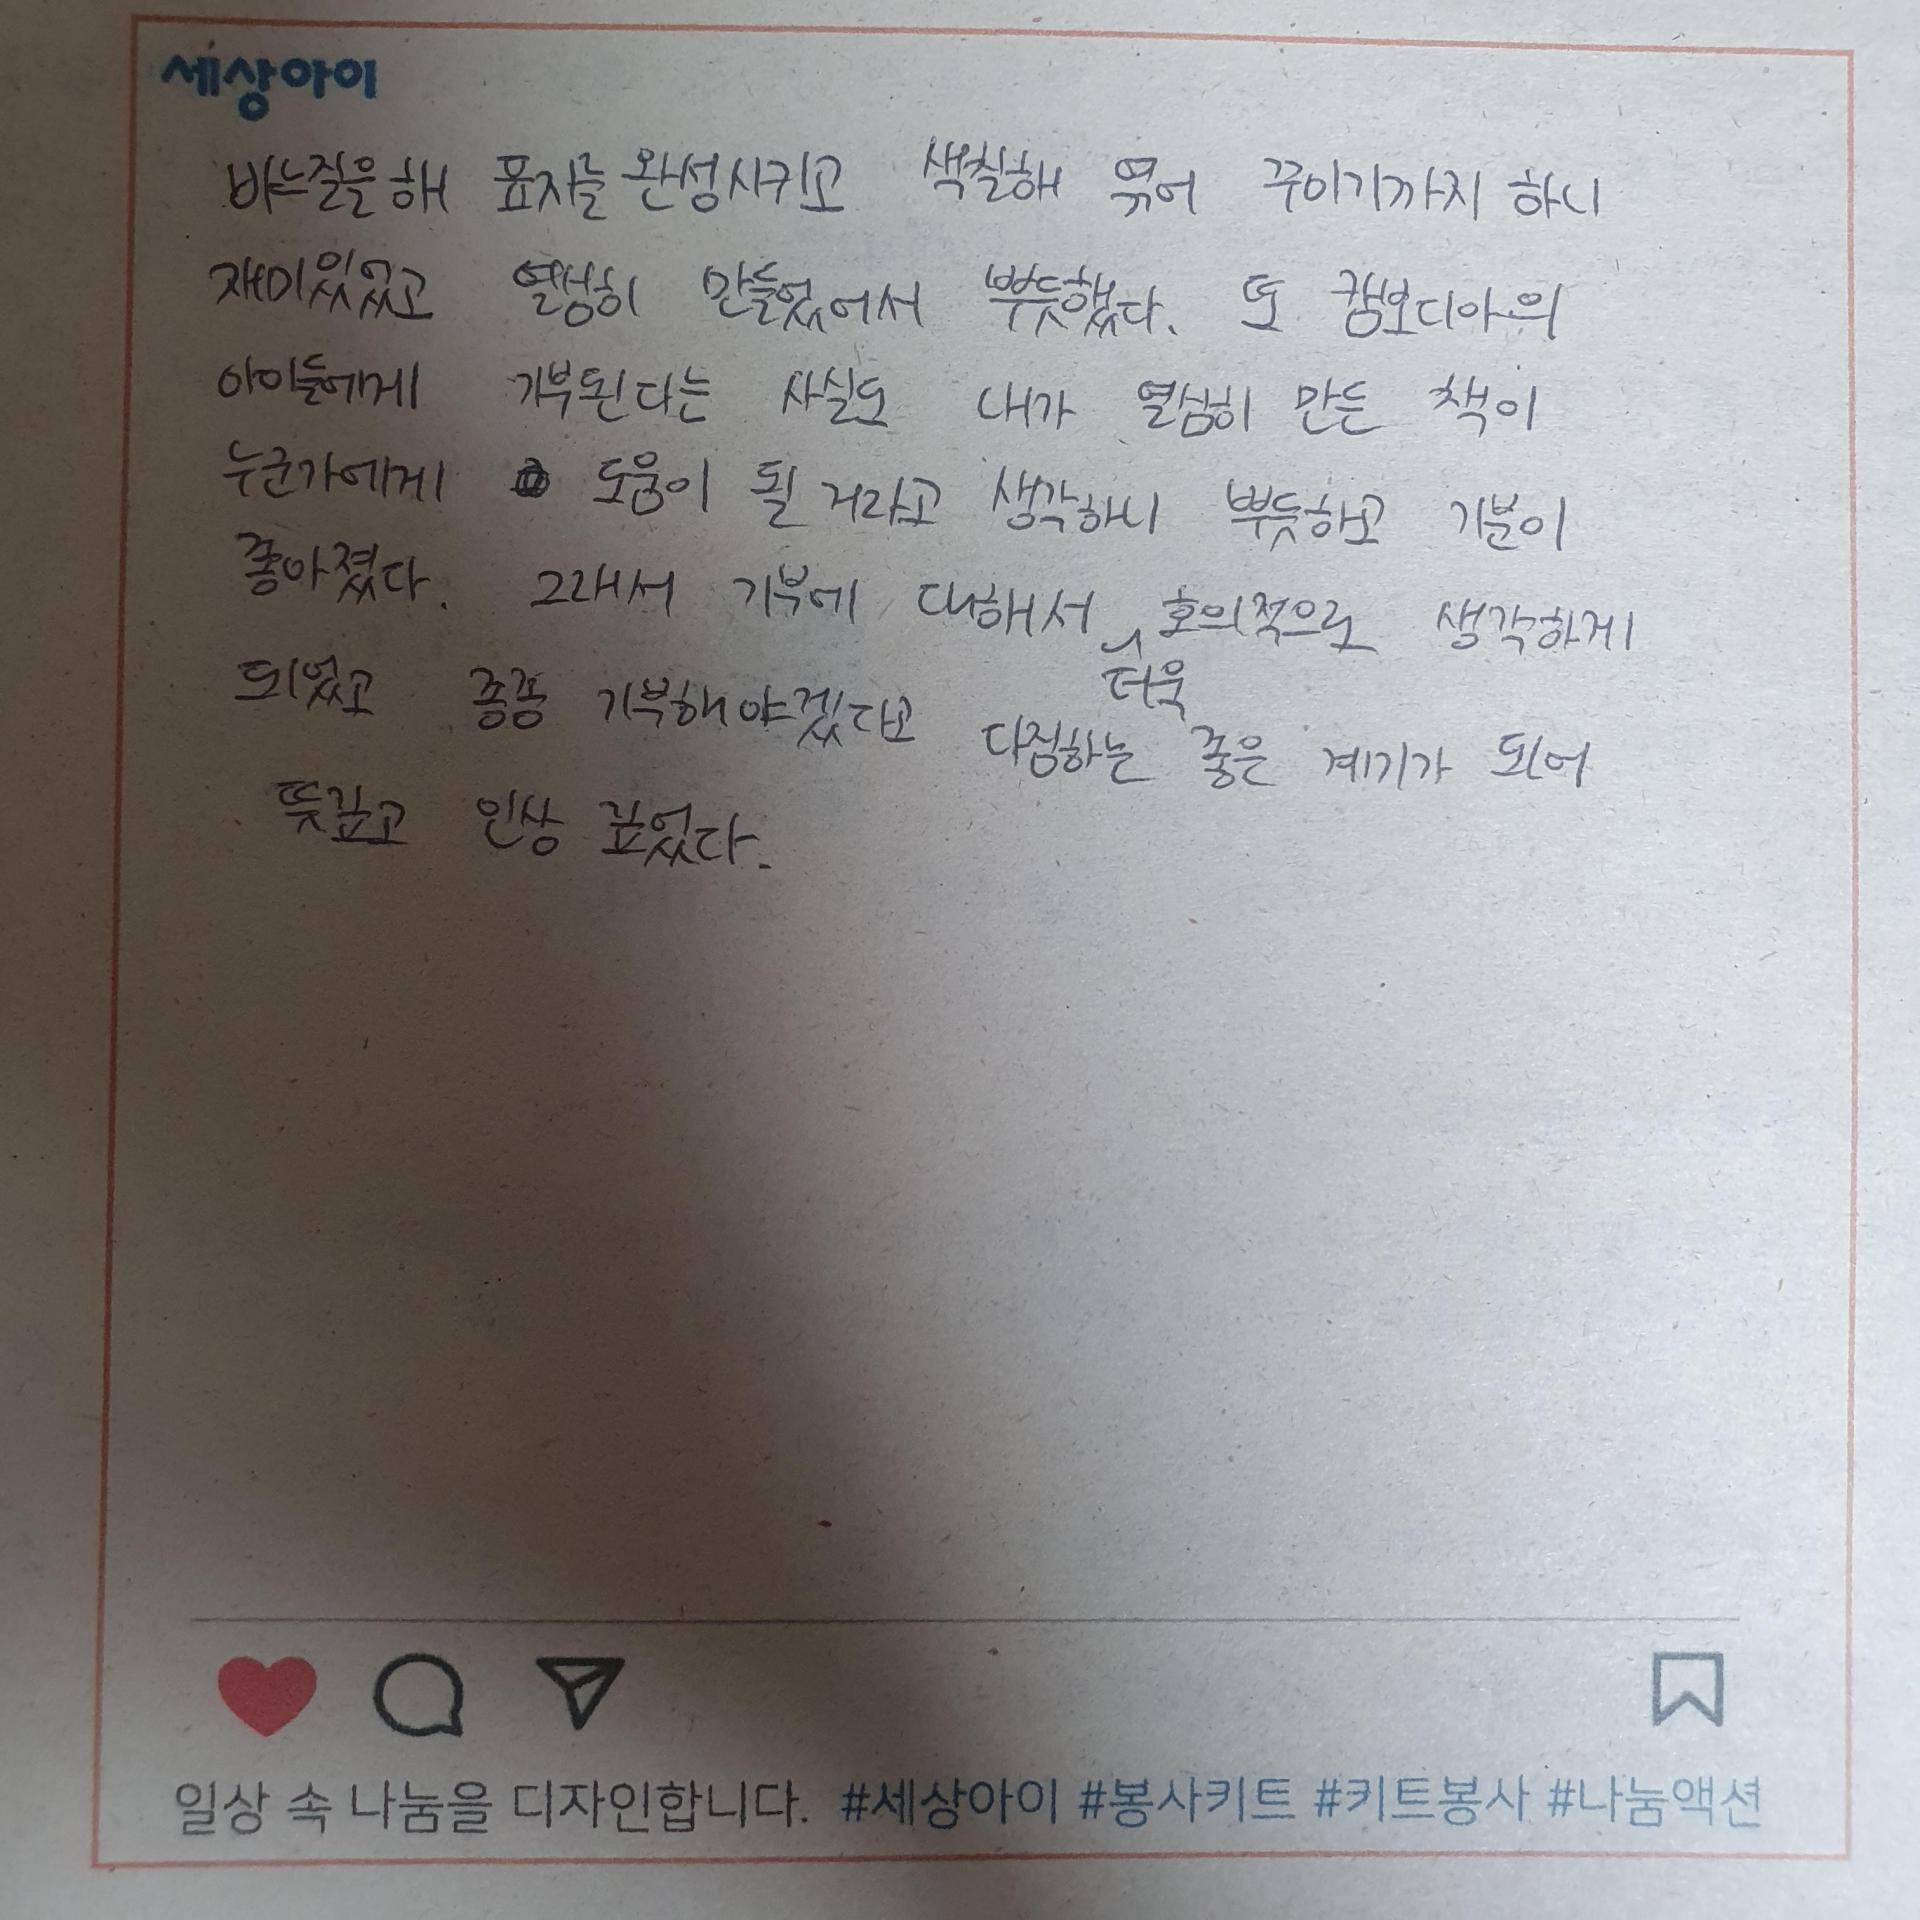 세상아이
바느질을 해 표지를 완성시키고 색칠해 엮어 꾸미기까지 하니
재미있었고 열심히 만들었어서 뿌듯했다. 또 캄보디아의
아이들에게 기부된다는 사실도 내가 열심히 만든 책이
누군가에게 도움이 될 거라고 생각하니 뿌듯하고 기분이
좋아졌다. 그래서 기부에 대해서 더욱 호의적으로 생각하게
되었고 종종 기부해야겠다고 다짐하는 좋은 계기가 되어
뜻깊고 인상 깊었다.
일상 속 나눔을 디자인합니다. #세상아이 #봉사키트 #키트봉사 #나눔액션